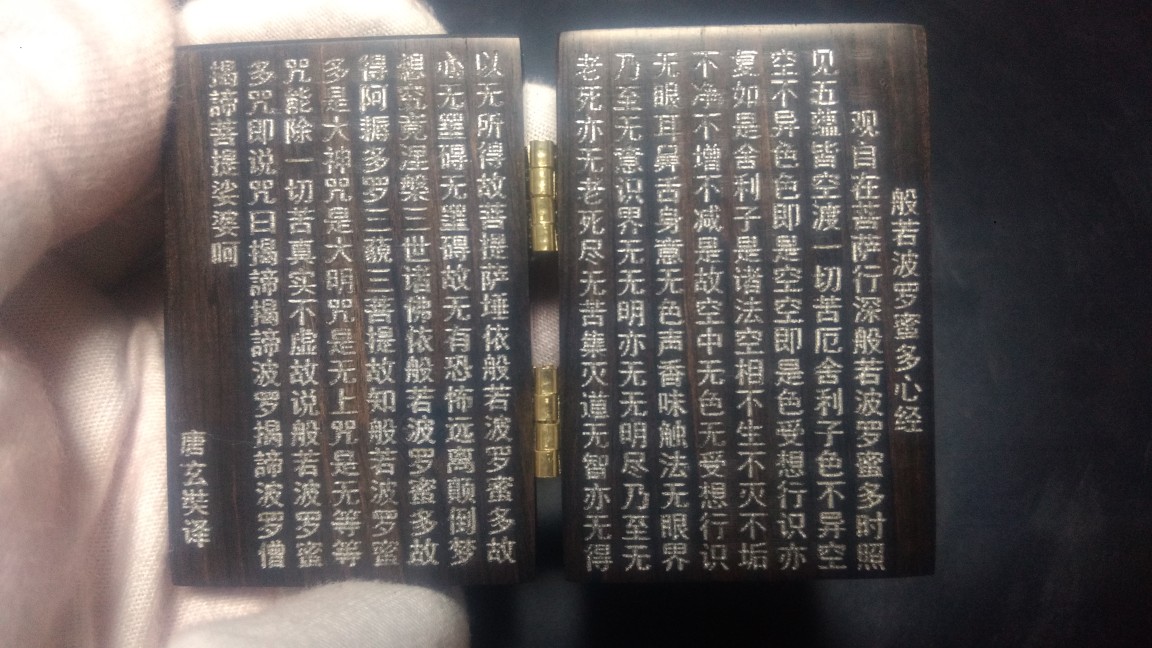 般若波罗蜜多心经
观自在菩萨行深般若波罗蜜多时照
见五蕴皆空渡一切苦厄舍利子色不异空
空不异色色即是空空即是色受想行识亦
复如是舍利子是诸法空相不生不灭不垢
不净不增不减是故空中无色无受想行识
无眼耳鼻舌身意无色声香味触法无眼界
乃至无意识界无无明亦无无明尽乃至无
老死亦无老死尽无苦集灭道无智亦无得
以无所得故菩提萨埵依般若波罗蜜多故
心无罣碍无罣碍故无有恐怖远离颠倒梦
想究竟涅槃三世诸佛依般若波罗蜜多故
得阿耨多罗三藐三菩提故知般若波罗蜜
多是大神咒是大明咒是无上咒是无等等
咒能除一切苦真实不虚故说般若波罗蜜
多咒即说咒曰揭諦揭諦波罗揭諦波罗僧
揭諦菩提娑婆呵
唐玄奘译